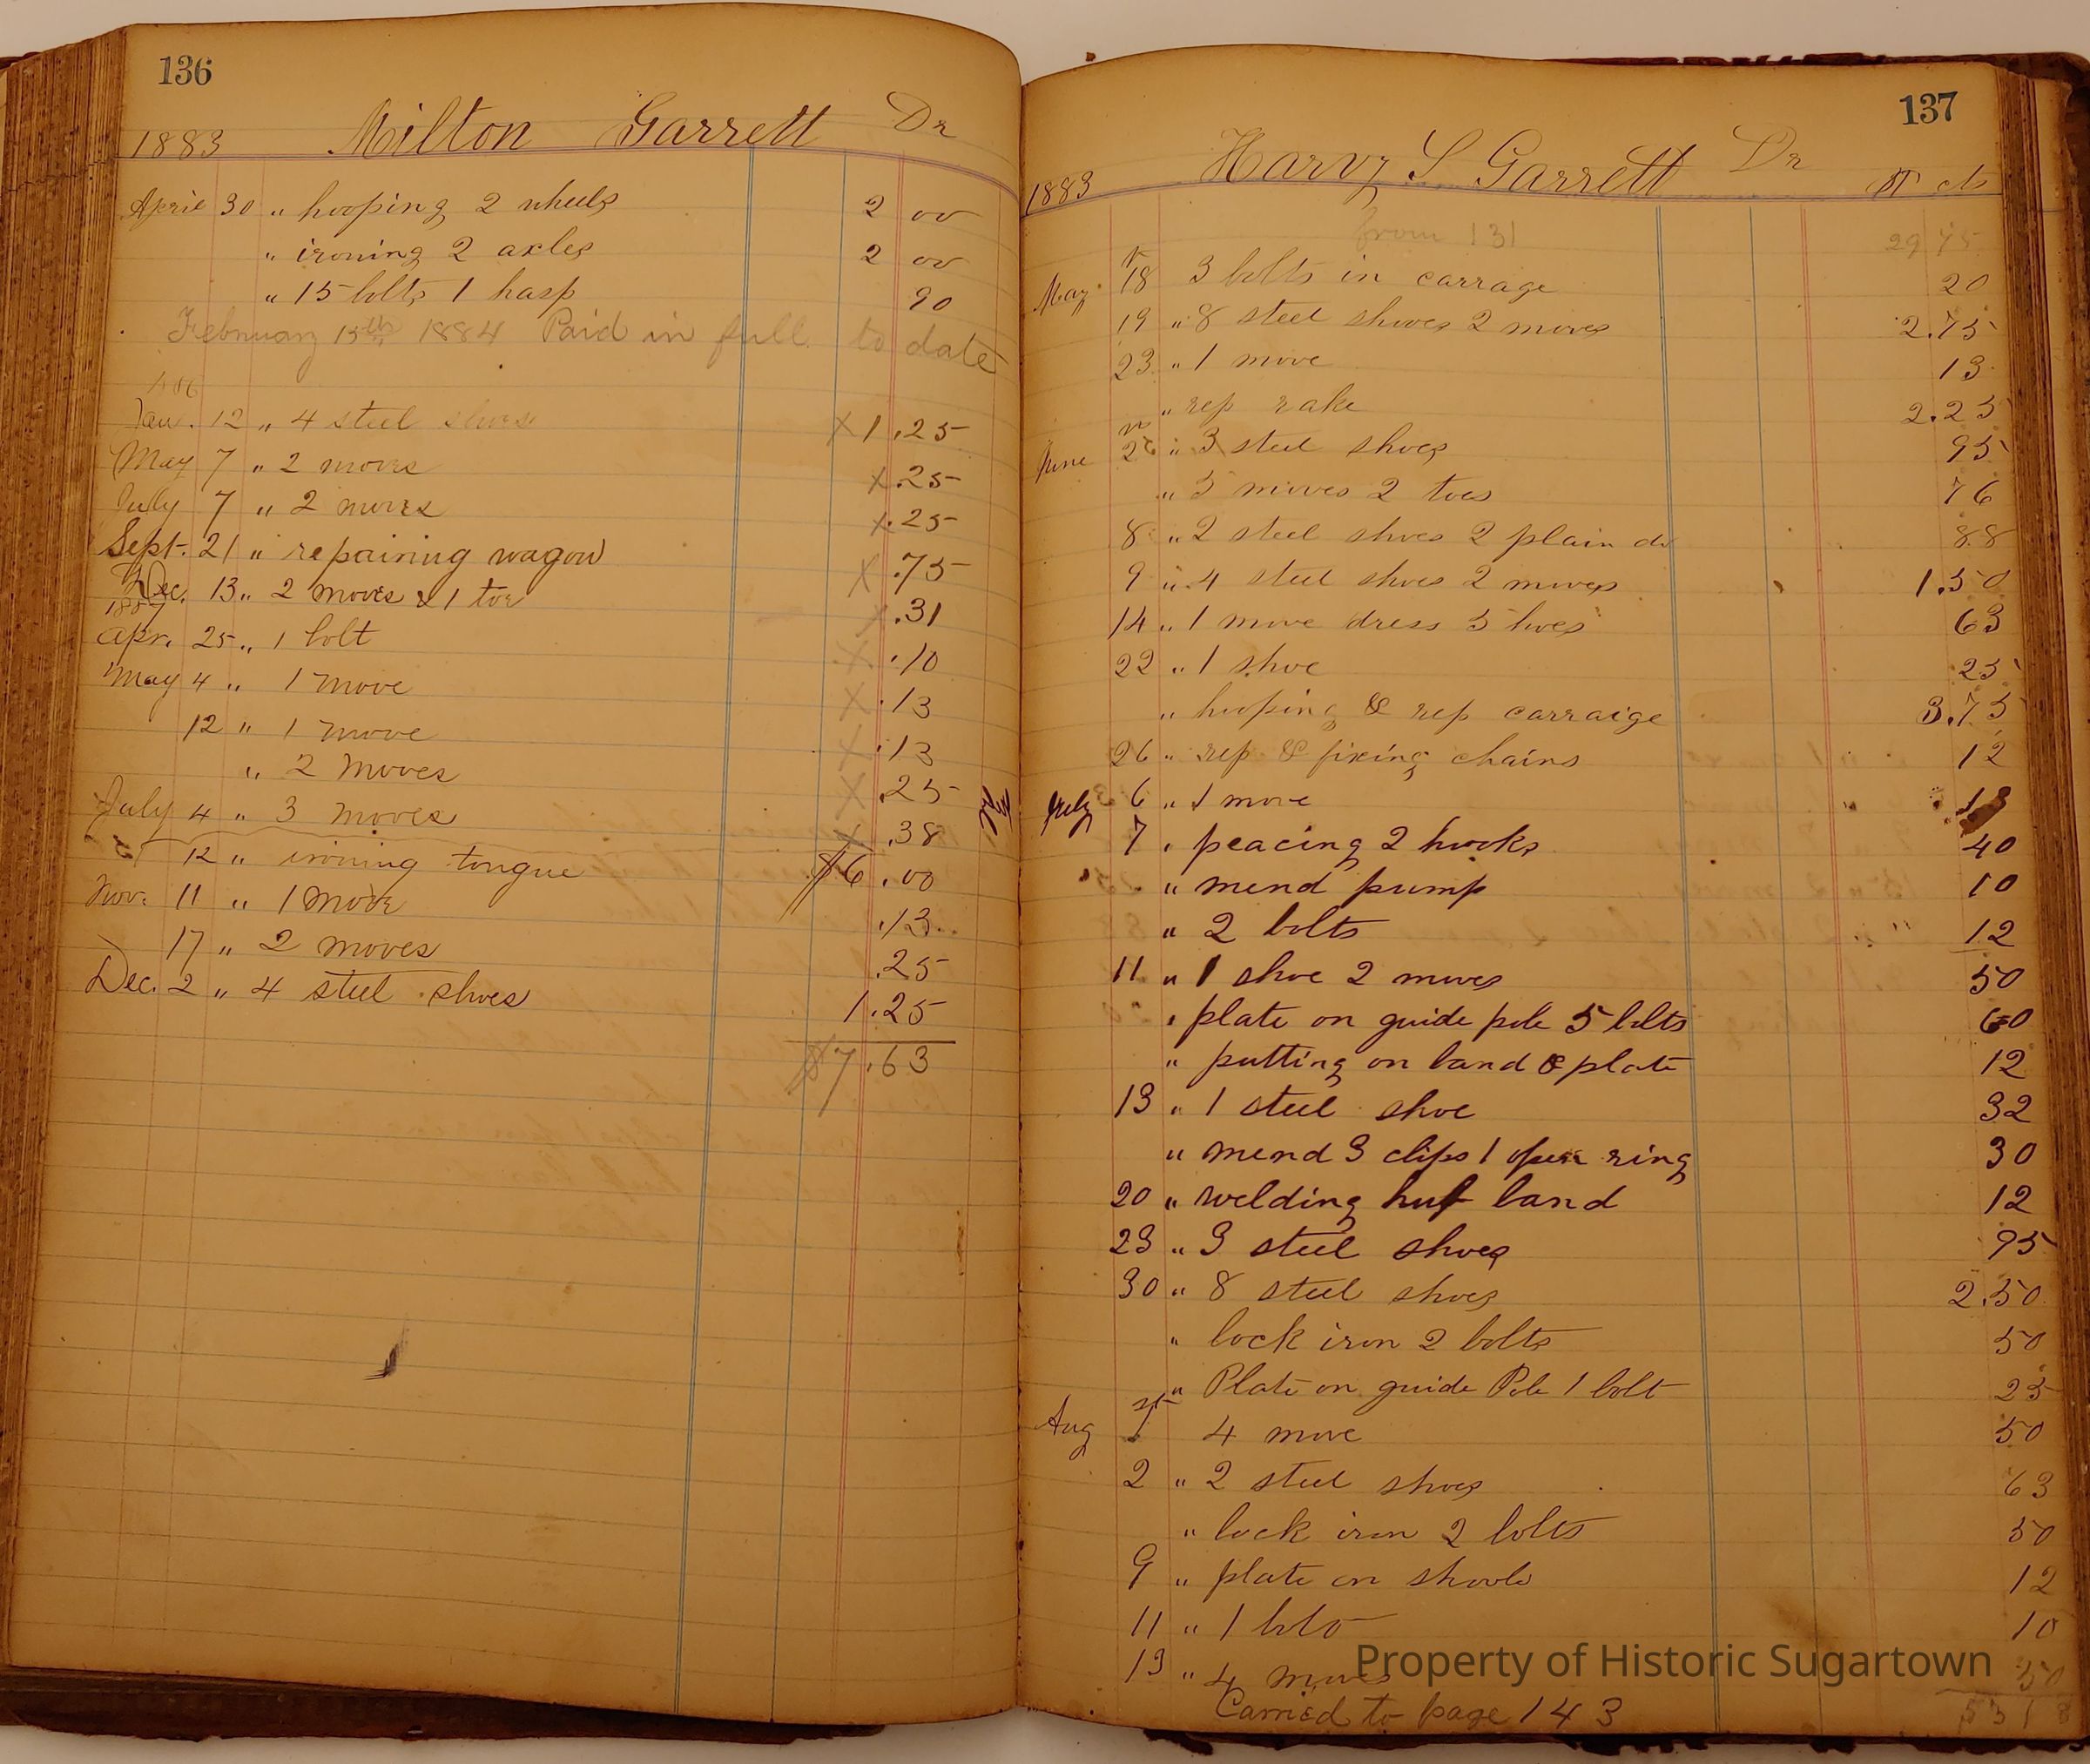 136
1883 Milton Garrett Dr
April 30 " hooping 2 wheels 2 00
" ironing 2 axles 2 00
" 15 bolts 1 hasp 90
February 15th 1884 Paid in full to date
Jan. 12 " 4 steel shoes X 1.25
May 7 " 2 moves X .25
July 7 " 2 moves X .25
Sept. 21 " repairing wagon X .75
Dec. 13 " 2 moves & 1 toe X .31
1887
Apr. 25 " 1 bolt X .10
May 4 " 1 move X .13
12 " 1 move X .13
" 2 moves X .25
July 4 " 3 moves X .38
12 " ironing tongue $6.00
Nov. 11 " 1 move .13
17 " 2 moves .25
Dec. 2 " 4 steel shoes 1.25
$7.63
137
1883 Harvy S Garrett Dr $ cts
from 131 29 75
May 18 3 bolts in carrage 20
19 " 8 steel shoes 2 moves 2.75
23 " 1 move 13
" rep rake 2.25
June 3 steel shoes 95
" 5 moves 2 toes 76
8 " 2 steel shoes 2 plain do 88
9 " 4 steel shoes 2 moves 1.50
14 " 1 move dress 5 hoes 63
22 " 1 shoe 25
" hooping & rep carraige 3.75
26 " rep & fixing chains 12
July 6 " 1 move 13
7 " peacing 2 hooks 40
" mend pump 10
" 2 bolts 12
11 " 1 shoe 2 moves 50
" plate on guide pole 5 bolts 60
" putting on band & plate 12
13 " 1 steel shoe 32
" mend 3 clips 1 open ring 30
20 " welding hub band 12
23 " 3 steel shoes 95
30 " 8 steel shoes 2.50
" lock iron 2 bolts 50
" Plate on guide Pole 1 bolt 25
Aug 1st 4 move 50
2 " 2 steel shoes 63
" lock iron 2 bolts 50
9 " plate on 12
11 " 1 10
13 " 4 moves 50
Carried to page 143 53 18
Property of Historic Sugartown